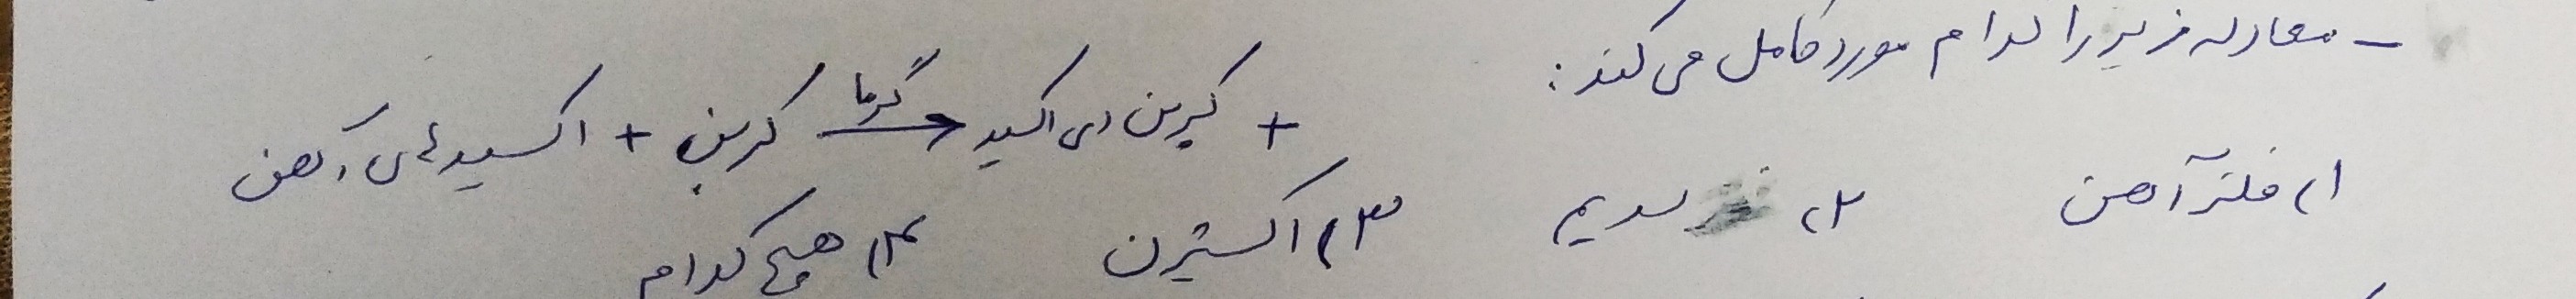 - معادله زیر را کدام مورد کامل می کند:
+ کربن دی اکسید ← گرما کربن + اکسیدهای آهن
۱) فلز آهن ۲) سدیم ۳) اکسیژن ۴) هیچ کدام